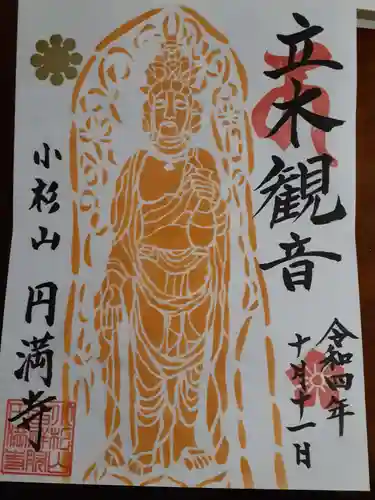 立木観音
令和四年
十月十一日
小杉山 円満寺